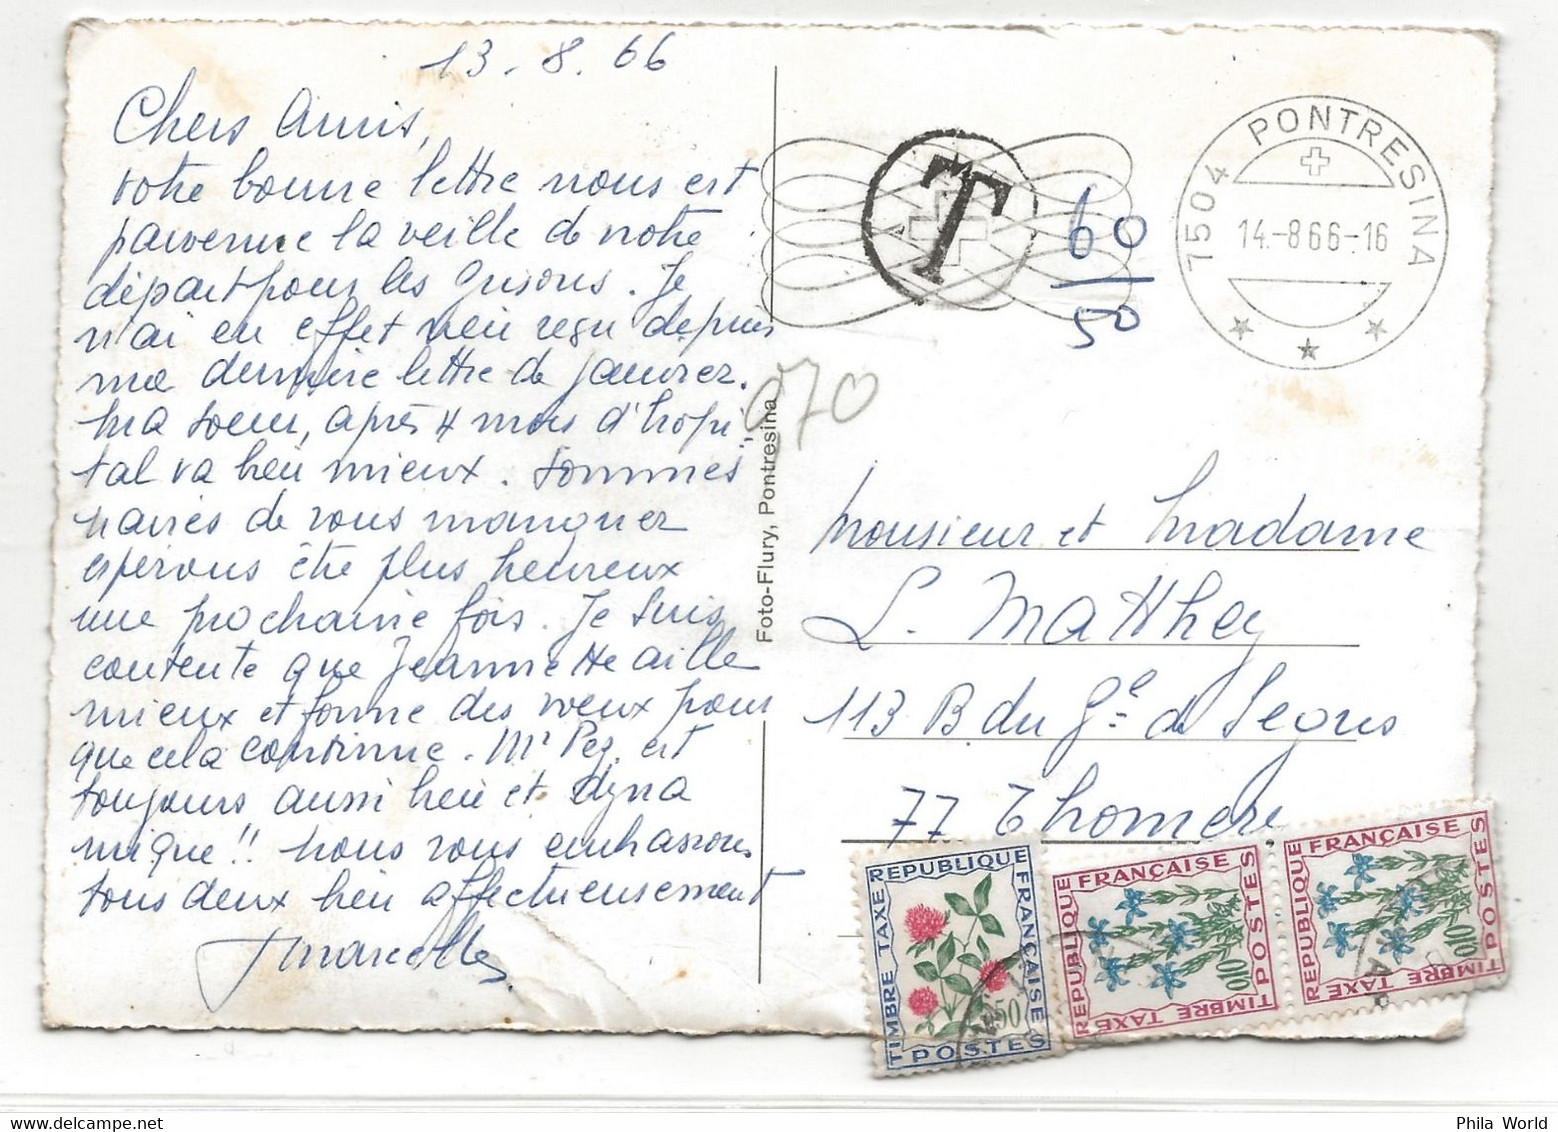 13.8.66
Chers Amis,
votre bonne lettre nous est
parvenue la veille de notre
départ pour les Grisons. Je
n'ai en effet rien reçu depuis
ma dernière lettre de janvier.
Ma soeur, après 4 mois d'hopi
tal va bien mieux. Sommes
navrés de vous manquer
espérons être plus heureux
une prochaine fois. Je suis
contente que Jeannette aille
mieux et forme des voeux pour
que cela continue. Mr Pez. est
toujours aussi bien et dyna
mique!! Nous vous embrassons
tous deux bien affectueusement
Marcelle
Foto-Flury, Pontresina
T
60
50
070
7504 PONTRESINA
14.-8 66-16
Monsieur et Madame
L. Matthey
113 B du Gal de Segurs
77 Thomery
REPUBLIQUE FRANÇAISE
TIMBRE TAXE
0,50
POSTES
REPUBLIQUE FRANÇAISE
TIMBRE TAXE
0,10
POSTES
REPUBLIQUE FRANÇAISE
TIMBRE TAXE
0,10
POSTES
Phila World